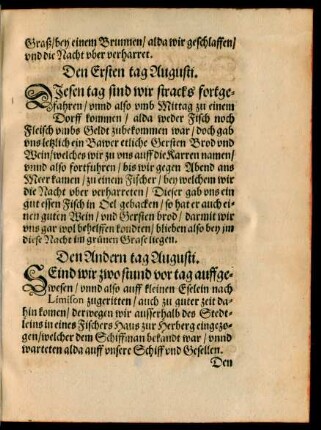 Graß/bey einem Brunnen/ alda wir geschlaffen/
vnd die Nacht vber verharret.
Den Ersten tag Augusti.
DJesen tag sind wir stracks fortge-
fahren/ vnnd also vmb Mittag zu einem
Dorff kommen/ alda weder Fisch noch
Fleisch vmbs Geldt zubekommen war/doch gab
vns letzlich ein Bawer etliche Gersten Brod vnd
Wein/welches wir zu vns auff die Karren namen/
vnnd also fortfuhren/ bis wir gegen Abend ans
Meer kamen/ zu einem Fischer/ bey welchem wir
die Nacht vber verharreten/ Dieser gab vns ein
gut essen Fisch in Oel gebacken/ so hat er auch ei-
nen guten Wein/ vnd Gersten brod/ darmit wir
vns gar wol behelffen kondten/ blieben also bey jm
diese Nacht im grünen Grase liegen.
Den Andern tag Augusti.
SEind wir zwo stund vor tag auffge-
wesen/ vnnd also auff kleinen Eselein nach
Limison zugeritten/ auch zu guter zeit da-
hin komen/ derwegen wir ausserhalb des Stedt-
leins in eines Fischers Haus zur Herberg eingezo-
gen/welcher dem Schiffman bekandt war/ vnnd
warteten alda auff vnsere Schiff vnd Gesellen.
Den